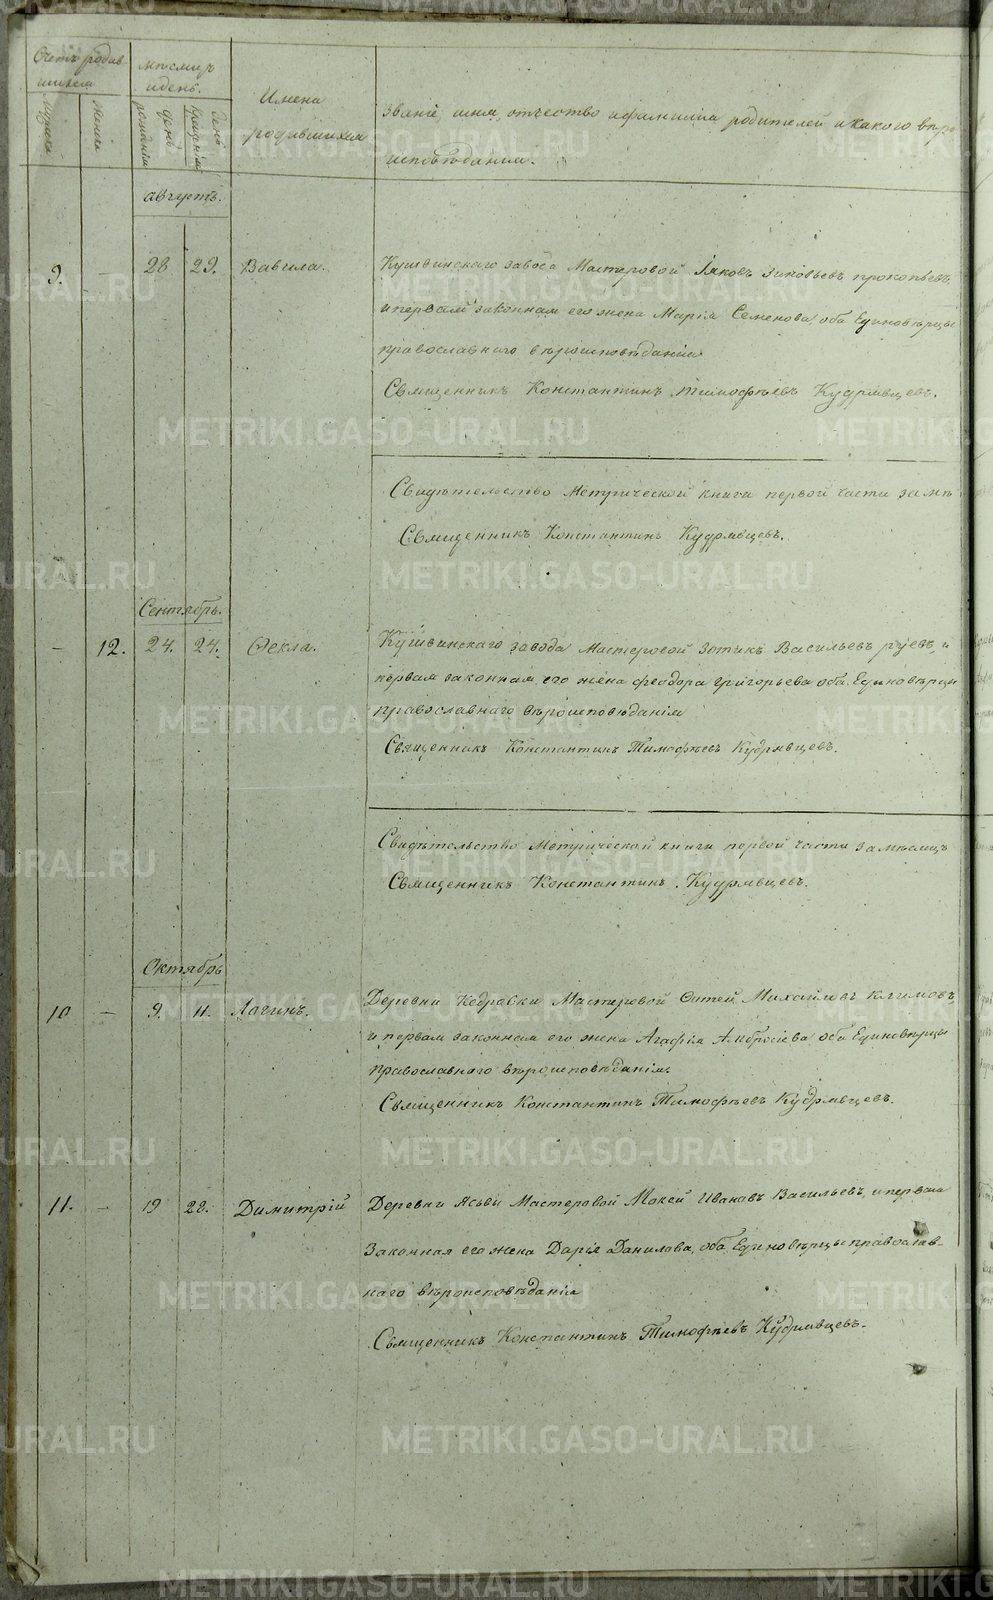 Счетъ родив
шихся
Мужска
Женска
мѣсяцъ
и день.
день
рожденія
день
Крещенія
Имена
родившихся
Званіе, имя, отчество и фамилія родителей и какого вѣро
исповѣданія.
августъ.
9. – 28 29. Вавила. Кушвинскаго завода Мастеровой Іаковъ Зиновьевъ прокопьевъ,
и первая законная его жена Марія Семенова оба Единовѣрцы
православнаго вѣроисповѣданія
Священникъ Константинъ Тимофѣевъ Кудрявцевъ.
Свидѣтельство Метрической книги первой части за мѣ
Священникъ Константинъ Кудрявцевъ.
Сентябрь.
– 12. 24. 24. Ѳекла. Кушвинскаго завода Мастеровой Зотикъ Васильевъ
первая законная его жена Феодора Григорьева оба Единовѣрцы
православнаго вѣроисповѣданія
Священникъ Константинъ Тимофѣевъ Кудрявцевъ.
Свидѣтельство Метрической книги первой части за мѣсяцъ
Священникъ Константинъ Кудрявцевъ.
Октябрь
10 – 9. 11. Логинъ. Деревни Кедровки Мастеровой Фотей Михайловъ Климовъ,
и первая законная его жена Агафія Амбросіева оба Единовѣрцы
православнаго вѣроисповѣданія.
Священникъ Константинъ Тимофѣевъ Кудрявцевъ.
11. – 19 28. Димитрій Деревни Ясьвы Мастеровой Мокей Ивановъ Васильевъ, и первая
Законная его жена Дарія Данилова, оба Единовѣрцы православ-
наго вѣроисповѣданія
Священникъ Константинъ Тимофѣевъ Кудрявцевъ.
METRIKI.GASO-URAL.RU